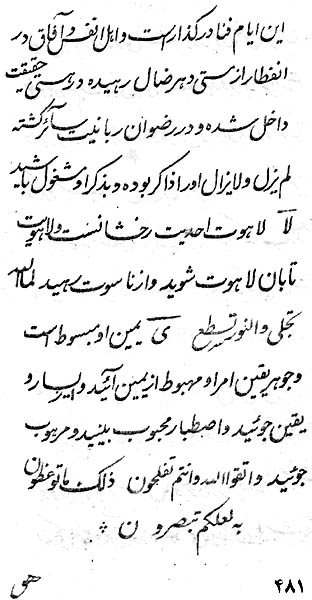 این ایام فنا در گذار است و اهل انفس و آفاق در
انفطار از مستی دهر ضال رهیده در هستی حقیقت
داخل شده و در رضوان ربانیت سائر گشته
لم یزل و لا یزال او را ذاکر بوده و بذکر او مشغول باشید
لا لاهوت احدیت رخشانست ولاهوت
تابان لاهوت شوید و از ناسوت رهید
تجلی والنور تسطع ی یمین او مبسوط است
و جوهر یقین امر او مهبوط از یمین آئید و ایسار و
یقین جوئید و اصطبار محبوب ببینید و مرهوب
جوئید و اتقوا الله وانتم تفلحون ذلک ما توعظون
به لعلکم تبصرون ن
۴۸۱
هق